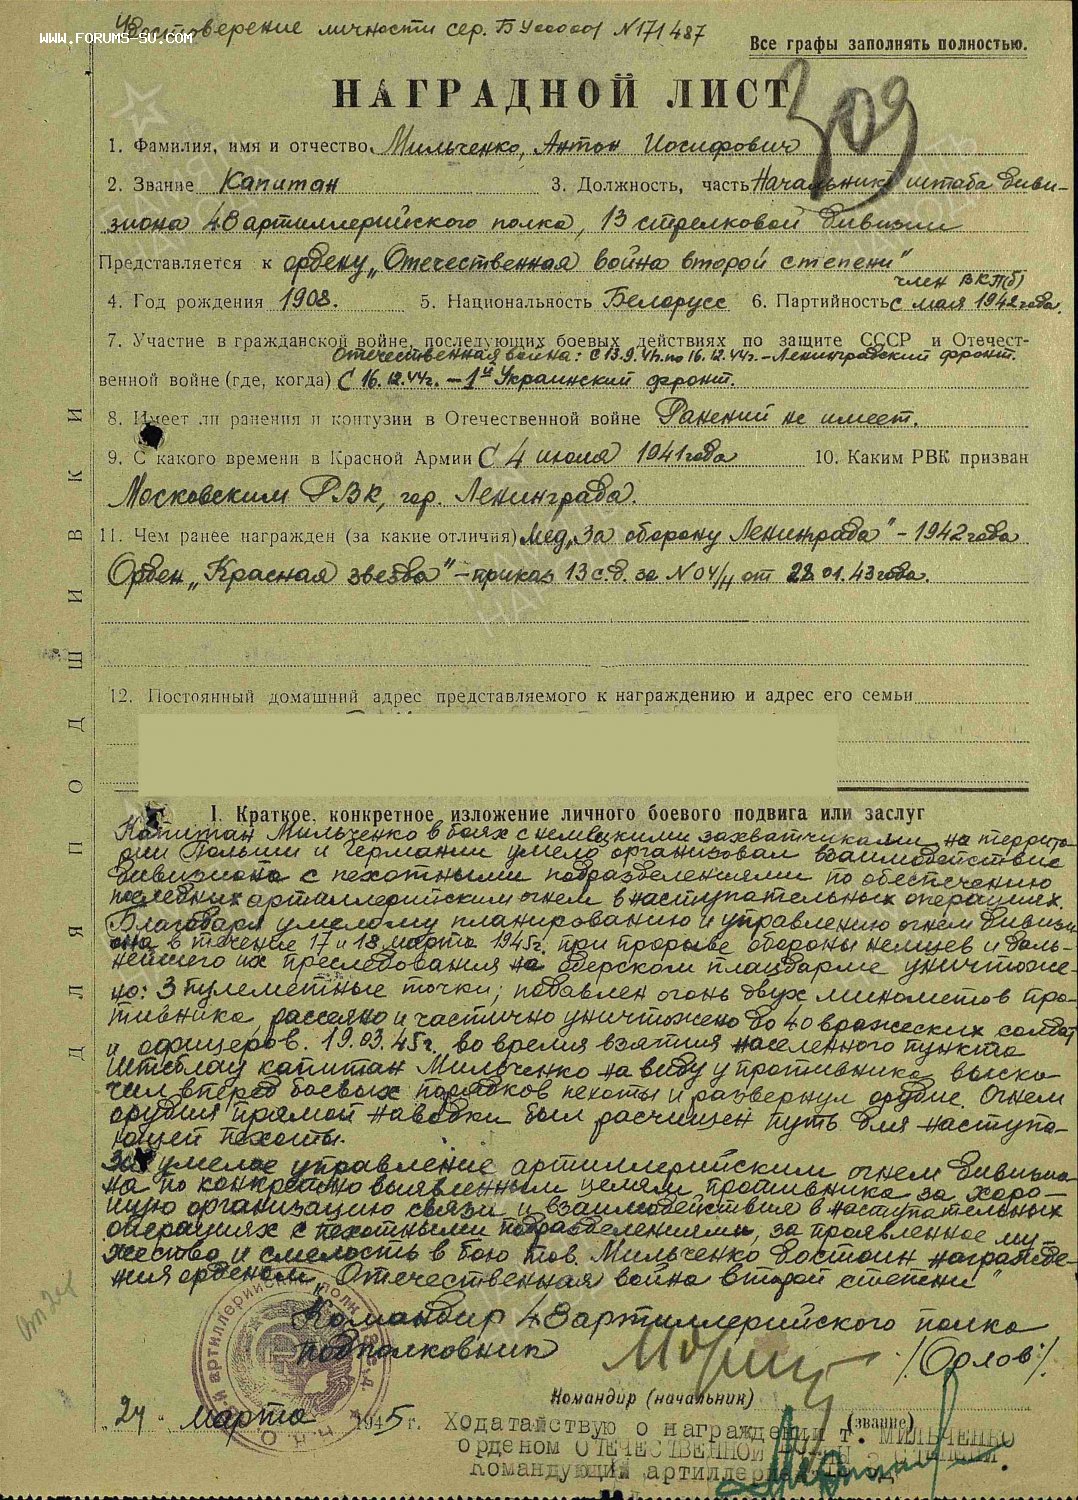 Удостоверение личности сер. Б У000001 №171487
WWW.FORUMS-SU.COM
Все графы заполнять полностью.
НАГРАДНОЙ ЛИСТ
309
1. Фамилия, имя и отчество Мильченко, Антон Иосифович
2. Звание Капитан 3. Должность, часть Начальник штаба диви-
зиона 48 артиллерийского полка, 13 стрелковой дивизии
Представляется к ордену „Отечественная война второй степени"
член ВКП(б)
4. Год рождения 1908. 5. Национальность Белорусс 6. Партийность с мая 1942 года.
7. Участие в гражданской войне, последующих боевых действиях по защите СССР и Отечест-
Отечественная война: с 13.9.41г. по 16.12.44г. – Ленинградский фронт.
венной войне (где, когда) С 16.12.44г. – 1й Украинский фронт.
8. Имеет ли ранения и контузии в Отечественной войне Ранений не имеет.
9. С какого времени в Красной Армии С 4 июля 1941 года 10. Каким РВК призван
Московским РВК, гор. Ленинграда.
11. Чем ранее награжден (за какие отличия) Мед. „За оборону Ленинграда" – 1942 года
Орден „Красная звезда" – приказ 13 с.д. за №04/н от 28.01.43 года.
12. Постоянный домашний адрес представляемого к награждению и адрес его семьи
ДЛЯ ПОДШИВКИ
I. Краткое, конкретное изложение личного боевого подвига или заслуг
Капитан Мильченко в боях с немецкими захватчиками на террито-
рии Польши и Германии умело организовал взаимодействие
дивизиона с пехотными подразделениями по обеспечению
последних артиллерийским огнем в наступательных операциях.
Благодаря умелому планированию и управлению огнем дивизи-
она в течение 17 и 18 марта 1945г. при прорыве обороны немцев и даль-
нейшего их преследования на одерском плацдарме уничтоже-
но: 3 пулеметные точки; подавлен огонь двух минометов про-
тивника, рассеяно и частично уничтожено до 40 вражеских солдат
и офицеров. 19.03.45г. во время взятия населенного пункта
капитан Мильченко на виду у противника выско-
чил вперед боевых порядков пехоты и развернул орудие. Огнем
орудия прямой наводки был расчищен путь для наступа-
ющей пехоты.
За умелое управление артиллерийским огнем дивизио-
на по конкретно выявленным целям противника за хоро-
шую организацию связи и взаимодействие в наступательных
операциях с пехотными подразделениями, за проявленное му-
жество и смелость в бою тов. Мильченко достоин награжде-
ния орденом „Отечественная война второй степени"
Командир 48 артиллерийского полка
подполковник /Орлов/.
Командир (начальник)
(звание)
„24" марта 1945 г.
Ходатайствую о награждении т. МИЛЬЧЕНКО
орденом ОТЕЧЕСТВЕННОЙ ВОЙНЫ 2 СТЕПЕНИ.
Командующий артиллерией